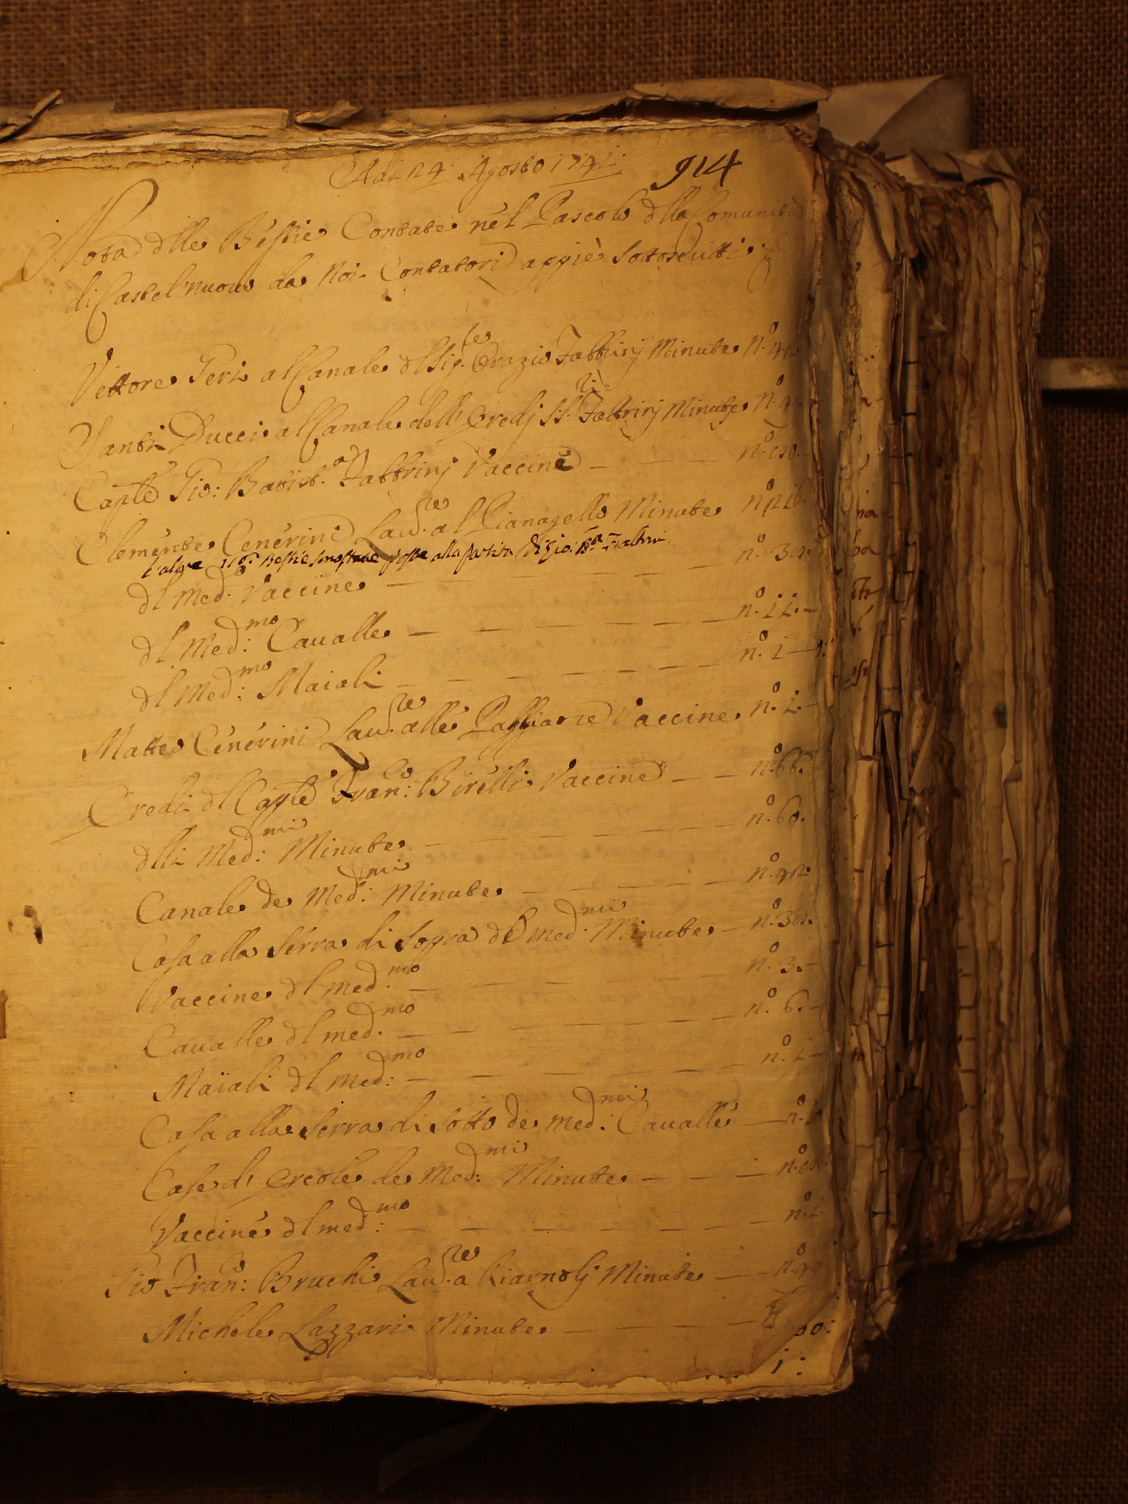 Adi 24 Agosto 1741: 914
Nota dlle Bestie Contate nel Pascolo dlla Comunità
di Castel nuovo da Noi Contatori appiè sottoscritti
Vettore Geri al Canale dl Sig.re Orazio Fabbrinj Minute N.°
Santi Ducci al Canale delli Eredj SS.ri Fabbrinj Minute N.°
Cap.te Gio: Batist.a Fabbrinj Vaccine n.°
Clemente Cenerini Lau.re al Pianagello Minute n.°
Bestie alla partita di Gio: Bta
dl med. Vaccine n.°
dl Med:mo Cavalle n.° 11.
dl Med:mo Maiali n.° 1
Matteo Cenerini Lau.re alle Pagliarce Vaccine n.° 1.
Eredi dl Cap.te Fran:co Birelli Vaccine n.° 66.
dlli Med:mi Minute n.° 60.
Canale de Med:mi Minute n.° 92
Casa alla Serra di Sopra de med:mi Minute n.° 32.
Vaccine dl med:mo n.° 3.
Cavalle dl med:mo n.° 6.
Maiali dl Med:mo n.° 1
Casa alla Serra di Sotto de med:mi Cavalle n.°
Case di Ercole de Med:mi Minute n.°
Vaccine dl med:mo n.°
Gio Fran:co Bruchi Lau.re a Minute n.°
Michele Lazzari Minute